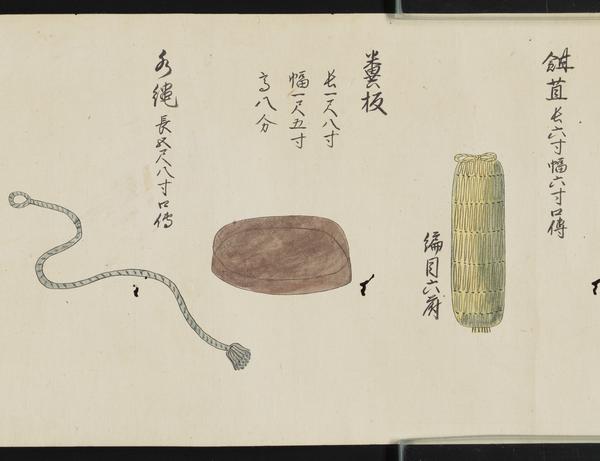 餌苴 長六寸幅六寸口傳
編目六府
糞板
長一尺八寸
幅一尺五寸
高八分
水縄 長五尺八寸口傳